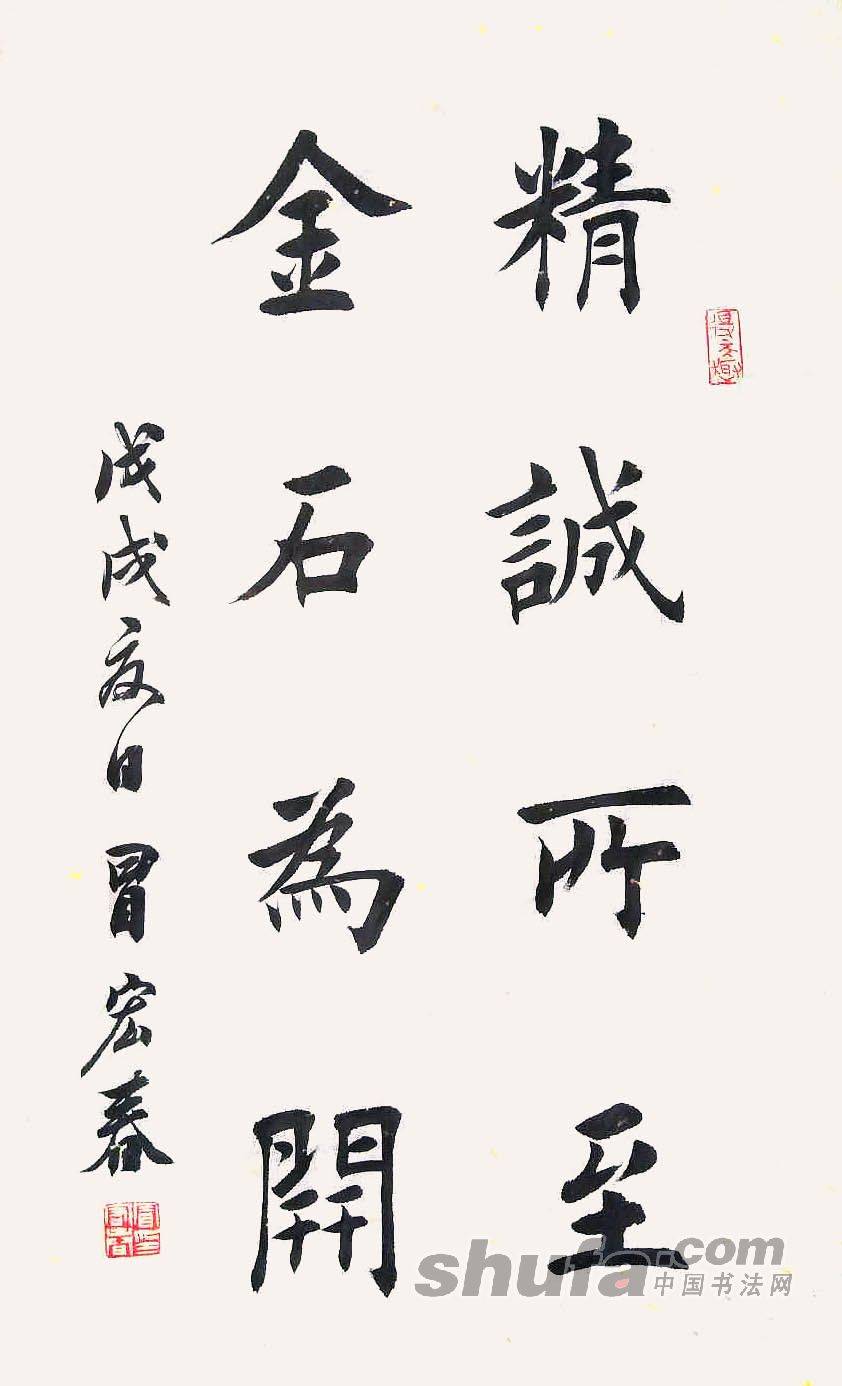 精誠所至
金石為開
戊戌夏日 冒宏春
shufa.com
中国书法网